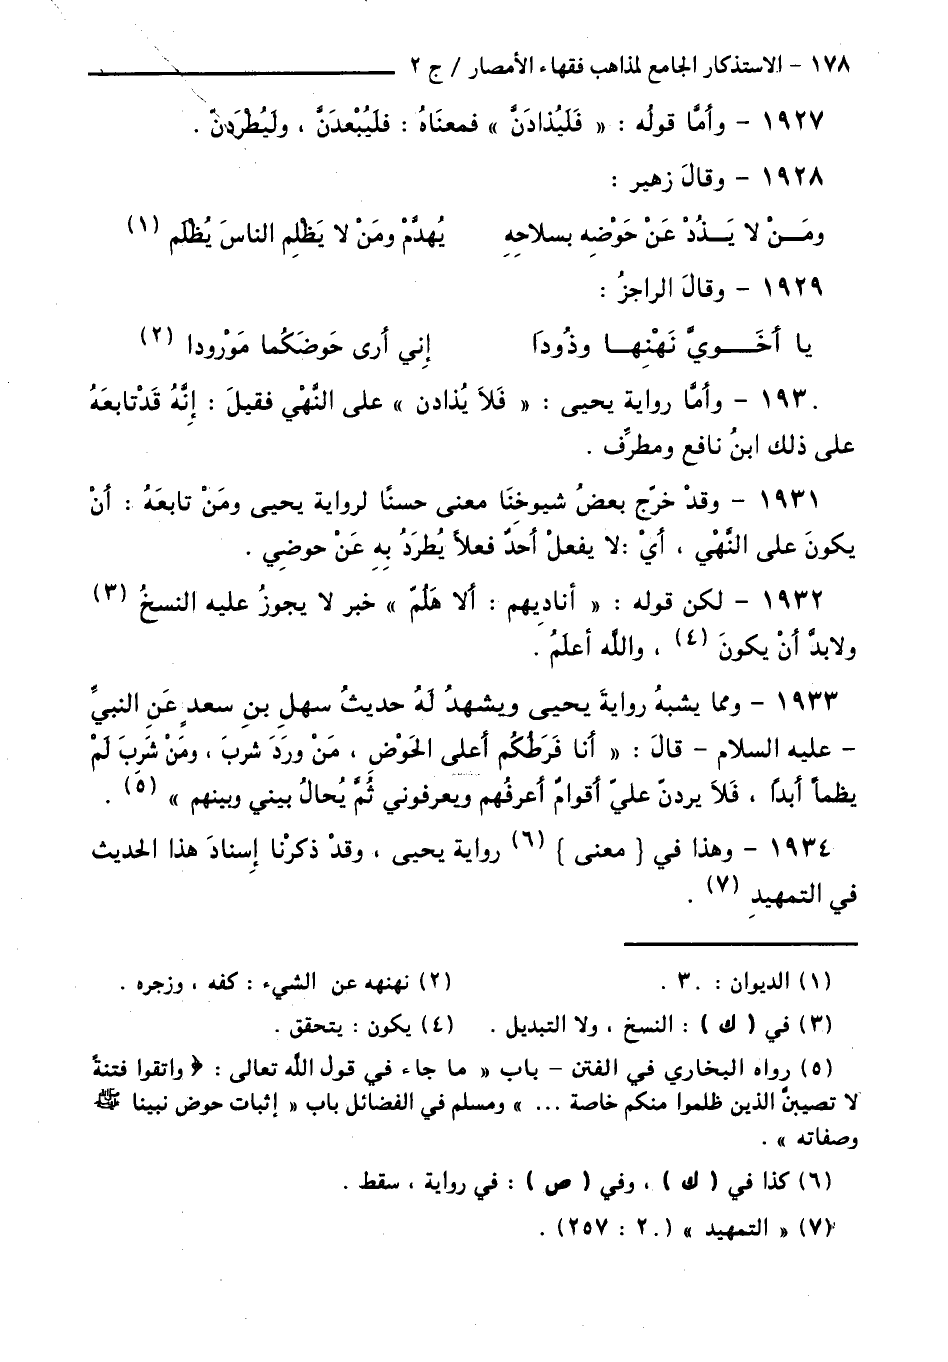 ١٧٨ – الاستذكار الجامع لمذاهب فقهاء الأمصار / ج ٢
١٩٢٧ – وأمَّا قولُه : « فَلَيُذادَنَّ » فمعنَاهُ : فليُبْعدَنَّ ، ولَيُطْرَدَنّ .
١٩٢٨ – وقالَ زهير :
ومَـنْ لا يَـذُدْ عَنْ حَوْضِه بسلاحِهِ يُهدَّمْ ومَنْ لا يَظْلِمِ الناسَ يُظْلَم (١)
١٩٢٩ – وقالَ الراجزُ :
يا أخَـويَّ نَهْنِهـا وذُودَا إني أرى حَوضَكُما مَوْرودا (٢)
١٩٣٠ – وأمَّا رواية يحيى : « فَلاَ يُذادن » على النَّهْي فقيلَ : إنَّهُ قَدْتابعَهُ
على ذلك ابنُ نافع ومطرِّف .
١٩٣١ – وقدْ خرّج بعضُ شيوخِنَا معنى حسنًا لرواية يحيى ومَنْ تابعَهُ : أنْ
يكونَ على النَّهْي ، أيْ :لا يفعلْ أحدٌ فعلاً يُطرَدُ بِهِ عَنْ حوضِي .
١٩٣٢ – لكن قوله : « أناديِهم : ألا هَلُمّ » خبر لا يجوزُ عليه النسخُ (٣)
ولابدَّ أنْ يكونَ (٤) ، واللّه أعلَمُ .
١٩٣٣ – ومما يشبهُ روايةَ يحيى ويشهدُ لَهُ حديثُ سهلِ بنِ سعدٍ عَنِ النبيِّ
– عليه السلام – قالَ : « أنا فَرَطُكُم أعلى الحَوْضِ ، مَنْ ورَدَ شربَ ، ومَنْ شَرِبَ لَمْ
يظمأ أبدًا ، فَلاَ يردنّ عليّ أقوامٌ أعرفُهم ويَعرفوني ثُمَّ يُحالُ بيني وبينهم » (٥) .
١٩٣٤ – وهذا في { معنى } (٦) رواية يحيى ، وقدْ ذكرْنا إسنادَ هذا الحديث
في التمهيدِ (٧) .
(١) الديوان : ٣٠ . (٢) نهنهه عن الشيء : كفه ، وزجره .
(٣) في ( ك ) : النسخ ، ولا التبديل . (٤) يكون : يتحقق .
(٥) رواه البخاري في الفتن – باب « ما جاء في قول اللّه تعالى : ﴿ واتقوا فتنةً
لا تصيبنَّ الذين ظلموا منكم خاصة ... » ومسلم في الفضائل باب « إثبات حوض نبينا ﷺ
وصفاته » .
(٦) كذا في ( ك ) ، وفي ( ص ) : في رواية ، سقط .
(٧) « التمهيد » (٢٠ : ٢٥٧) .